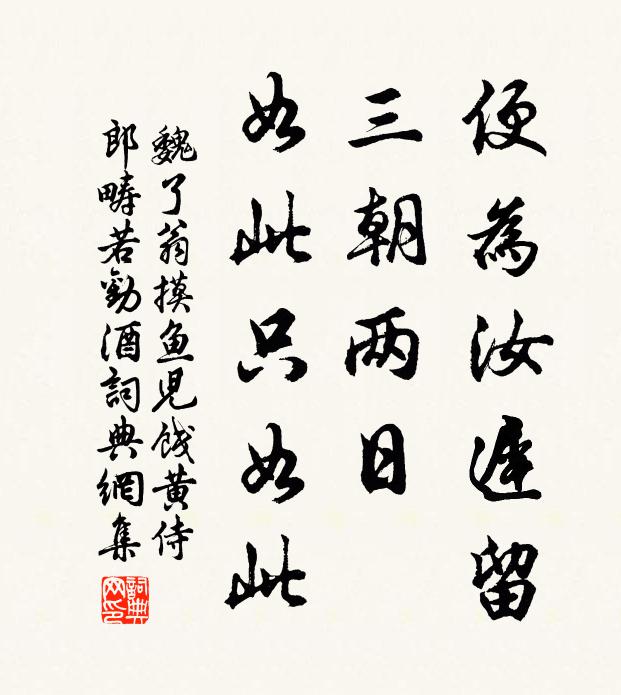 便為汝遲留
三朝两日
如此只如此
魏了翁摸魚児餞黄侍
郎疇若勸酒詞典網集
詞典
网印